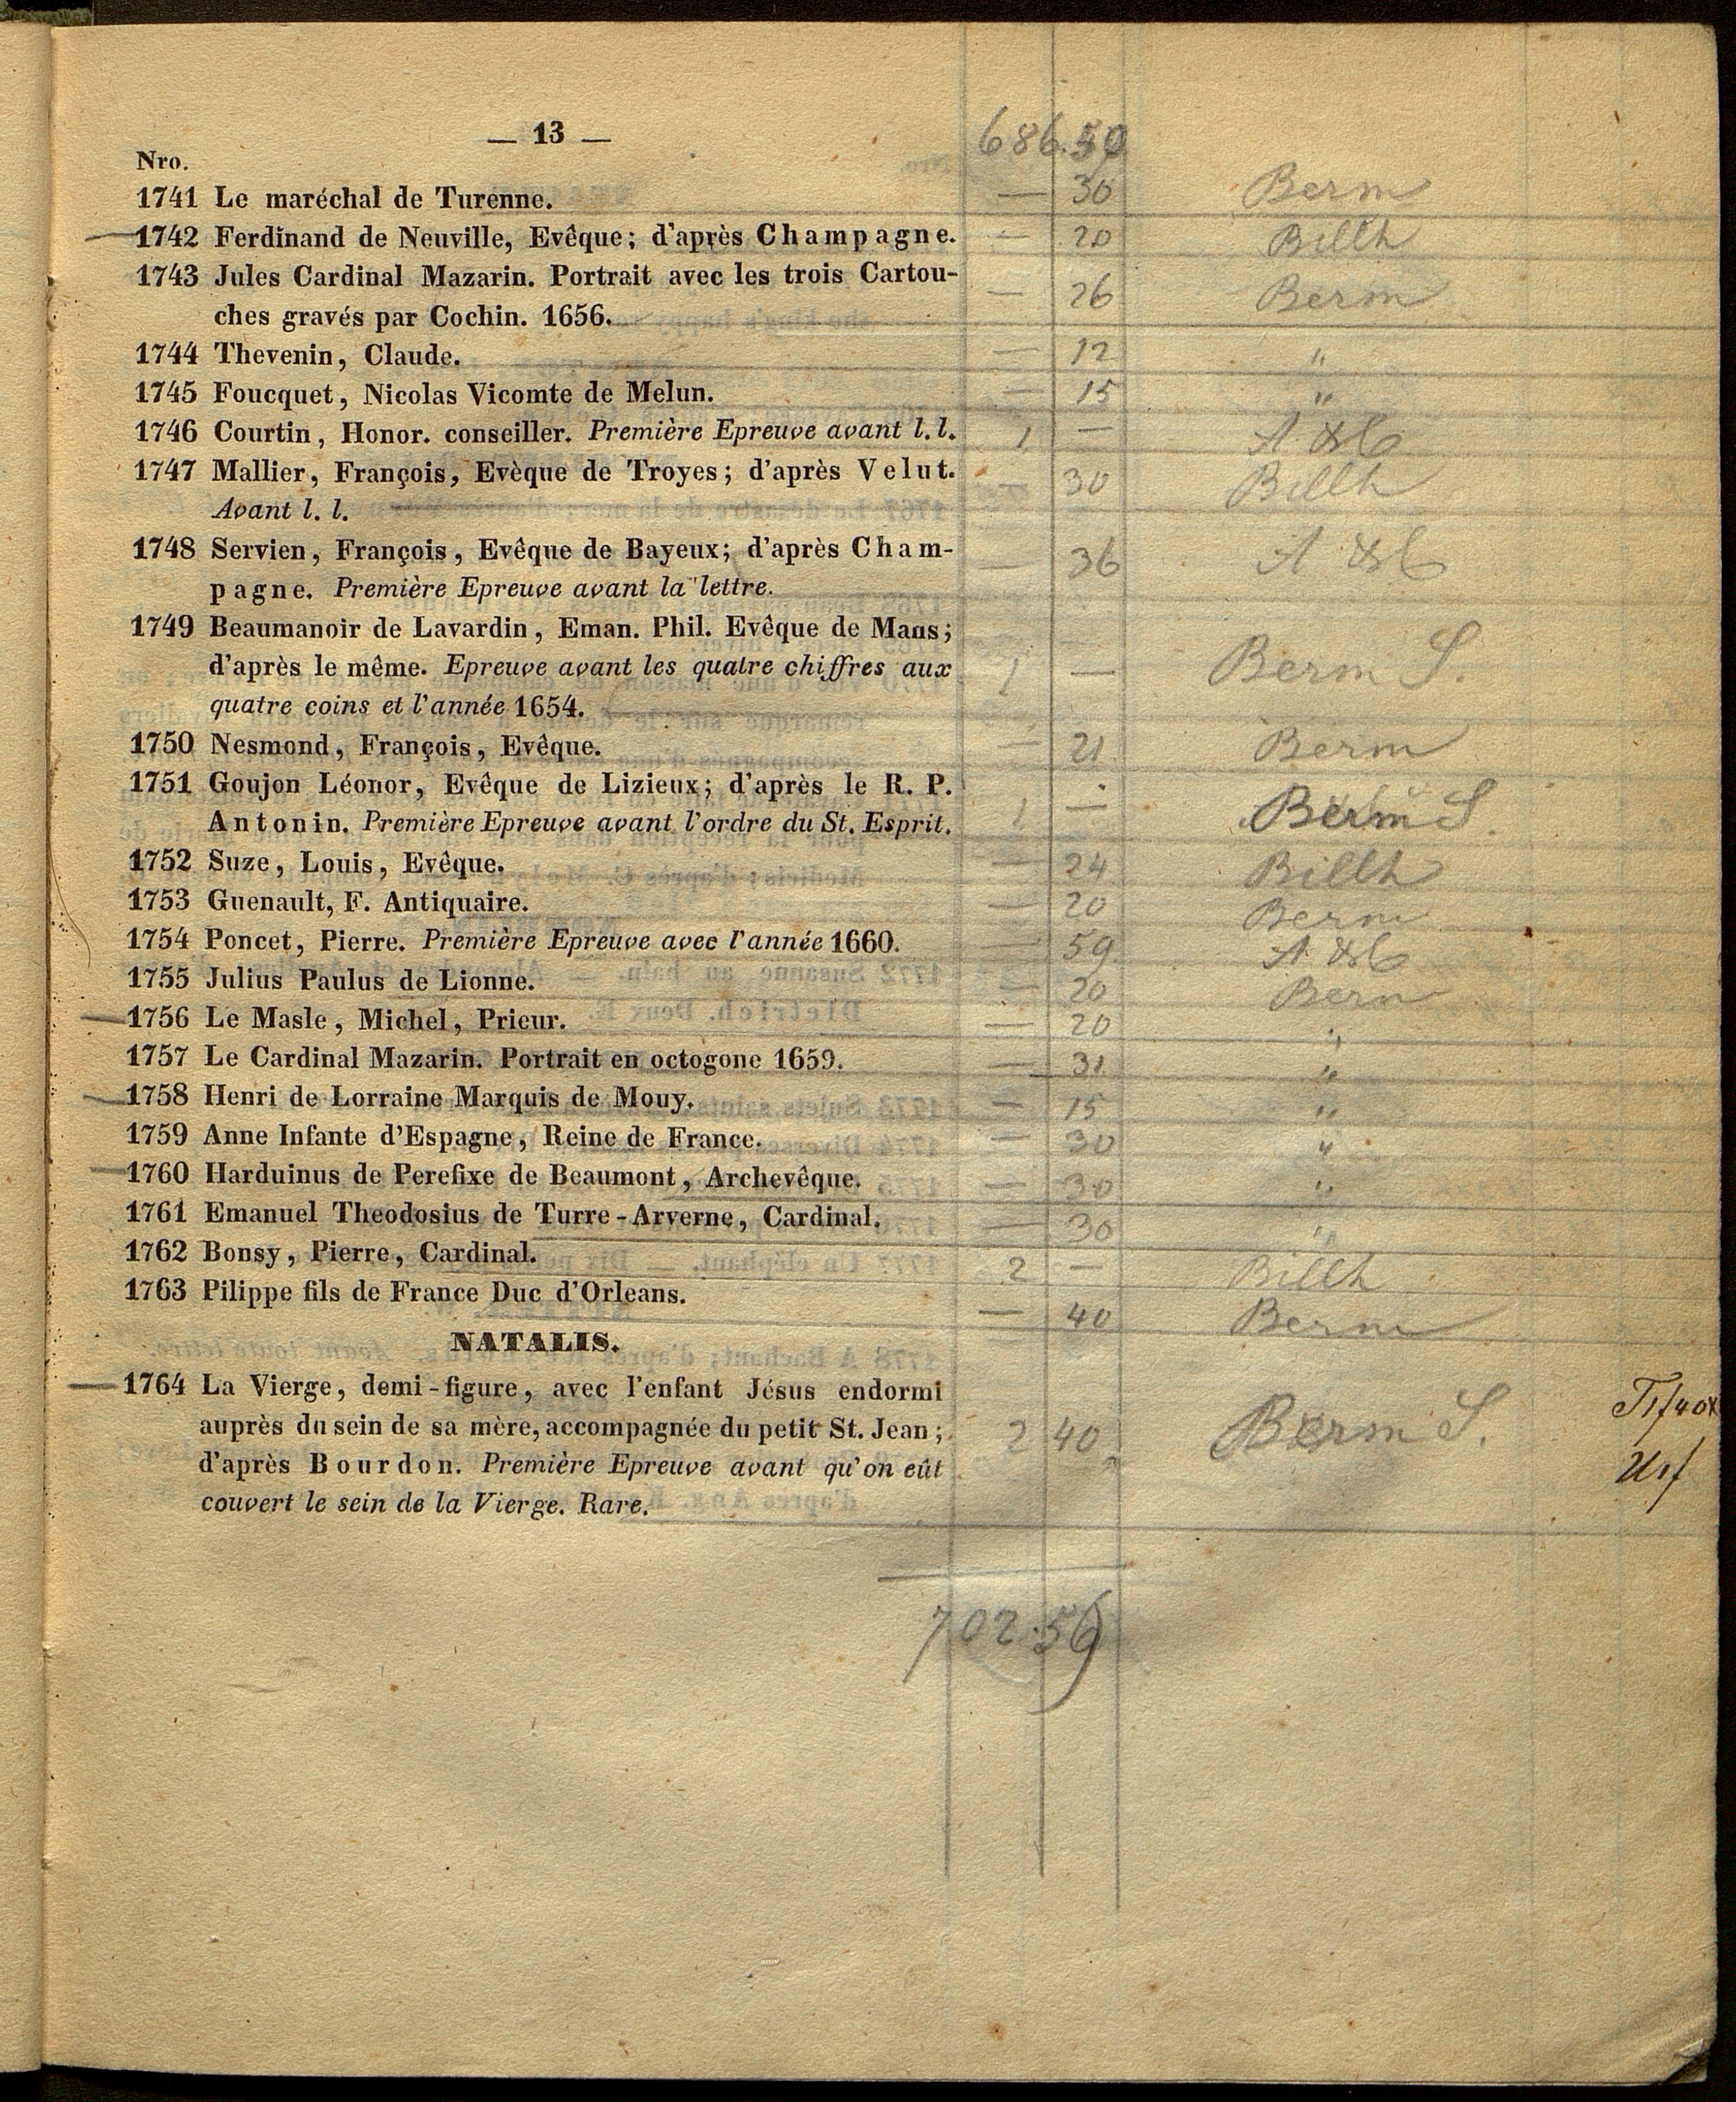 — 13 — 686.50
Nro.
1741 Le maréchal de Turenne. — 30 Berm
1742 Ferdinand de Neuville, Evêque; d'après Champagne. — 20 Billh
1743 Jules Cardinal Mazarin. Portrait avec les trois Cartou-
ches gravés par Cochin. 1656. — 26 Berm
1744 Thevenin, Claude. — 12 "
1745 Foucquet, Nicolas Vicomte de Melun. — 15 "
1746 Courtin, Honor. conseiller. Première Epreuve avant l. l. 1 —
1747 Mallier, François, Evèque de Troyes; d'après Velut. — 30 Billh
Avant l. l.
1748 Servien, François, Evêque de Bayeux; d'après Cham- — 36
pagne. Première Epreuve avant la lettre.
1749 Beaumanoir de Lavardin, Eman. Phil. Evêque de Mans;
d'après le même. Epreuve avant les quatre chiffres aux 1 — Berm S.
quatre coins et l'année 1654.
1750 Nesmond, François, Evêque. — 21 Berm
1751 Goujon Léonor, Evêque de Lizieux; d'après le R. P.
Antonin. Première Epreuve avant l'ordre du St. Esprit. 1 — Berm S.
1752 Suze, Louis, Evêque. — 24 Billh
1753 Guenault, F. Antiquaire. — 20 Berm
1754 Poncet, Pierre. Première Epreuve avec l'année 1660. — 59
1755 Julius Paulus de Lionne. — 20 Berm
1756 Le Masle, Michel, Prieur. — 20 "
1757 Le Cardinal Mazarin. Portrait en octogone 1659. — 31 "
1758 Henri de Lorraine Marquis de Mouy. — 15 "
1759 Anne Infante d'Espagne, Reine de France. — 30 "
1760 Harduinus de Perefixe de Beaumont, Archevêque. — 30 "
1761 Emanuel Theodosius de Turre-Arverne, Cardinal. — 30 "
1762 Bonsy, Pierre, Cardinal. 2 — Billh
1763 Pilippe fils de France Duc d'Orleans. — 40 Berm
NATALIS.
1764 La Vierge, demi-figure, avec l'enfant Jésus endormi
auprès du sein de sa mère, accompagnée du petit St. Jean; 2 40 Berm S.
d'après Bourdon. Première Epreuve avant qu'on eût
couvert le sein de la Vierge. Rare.
702.56